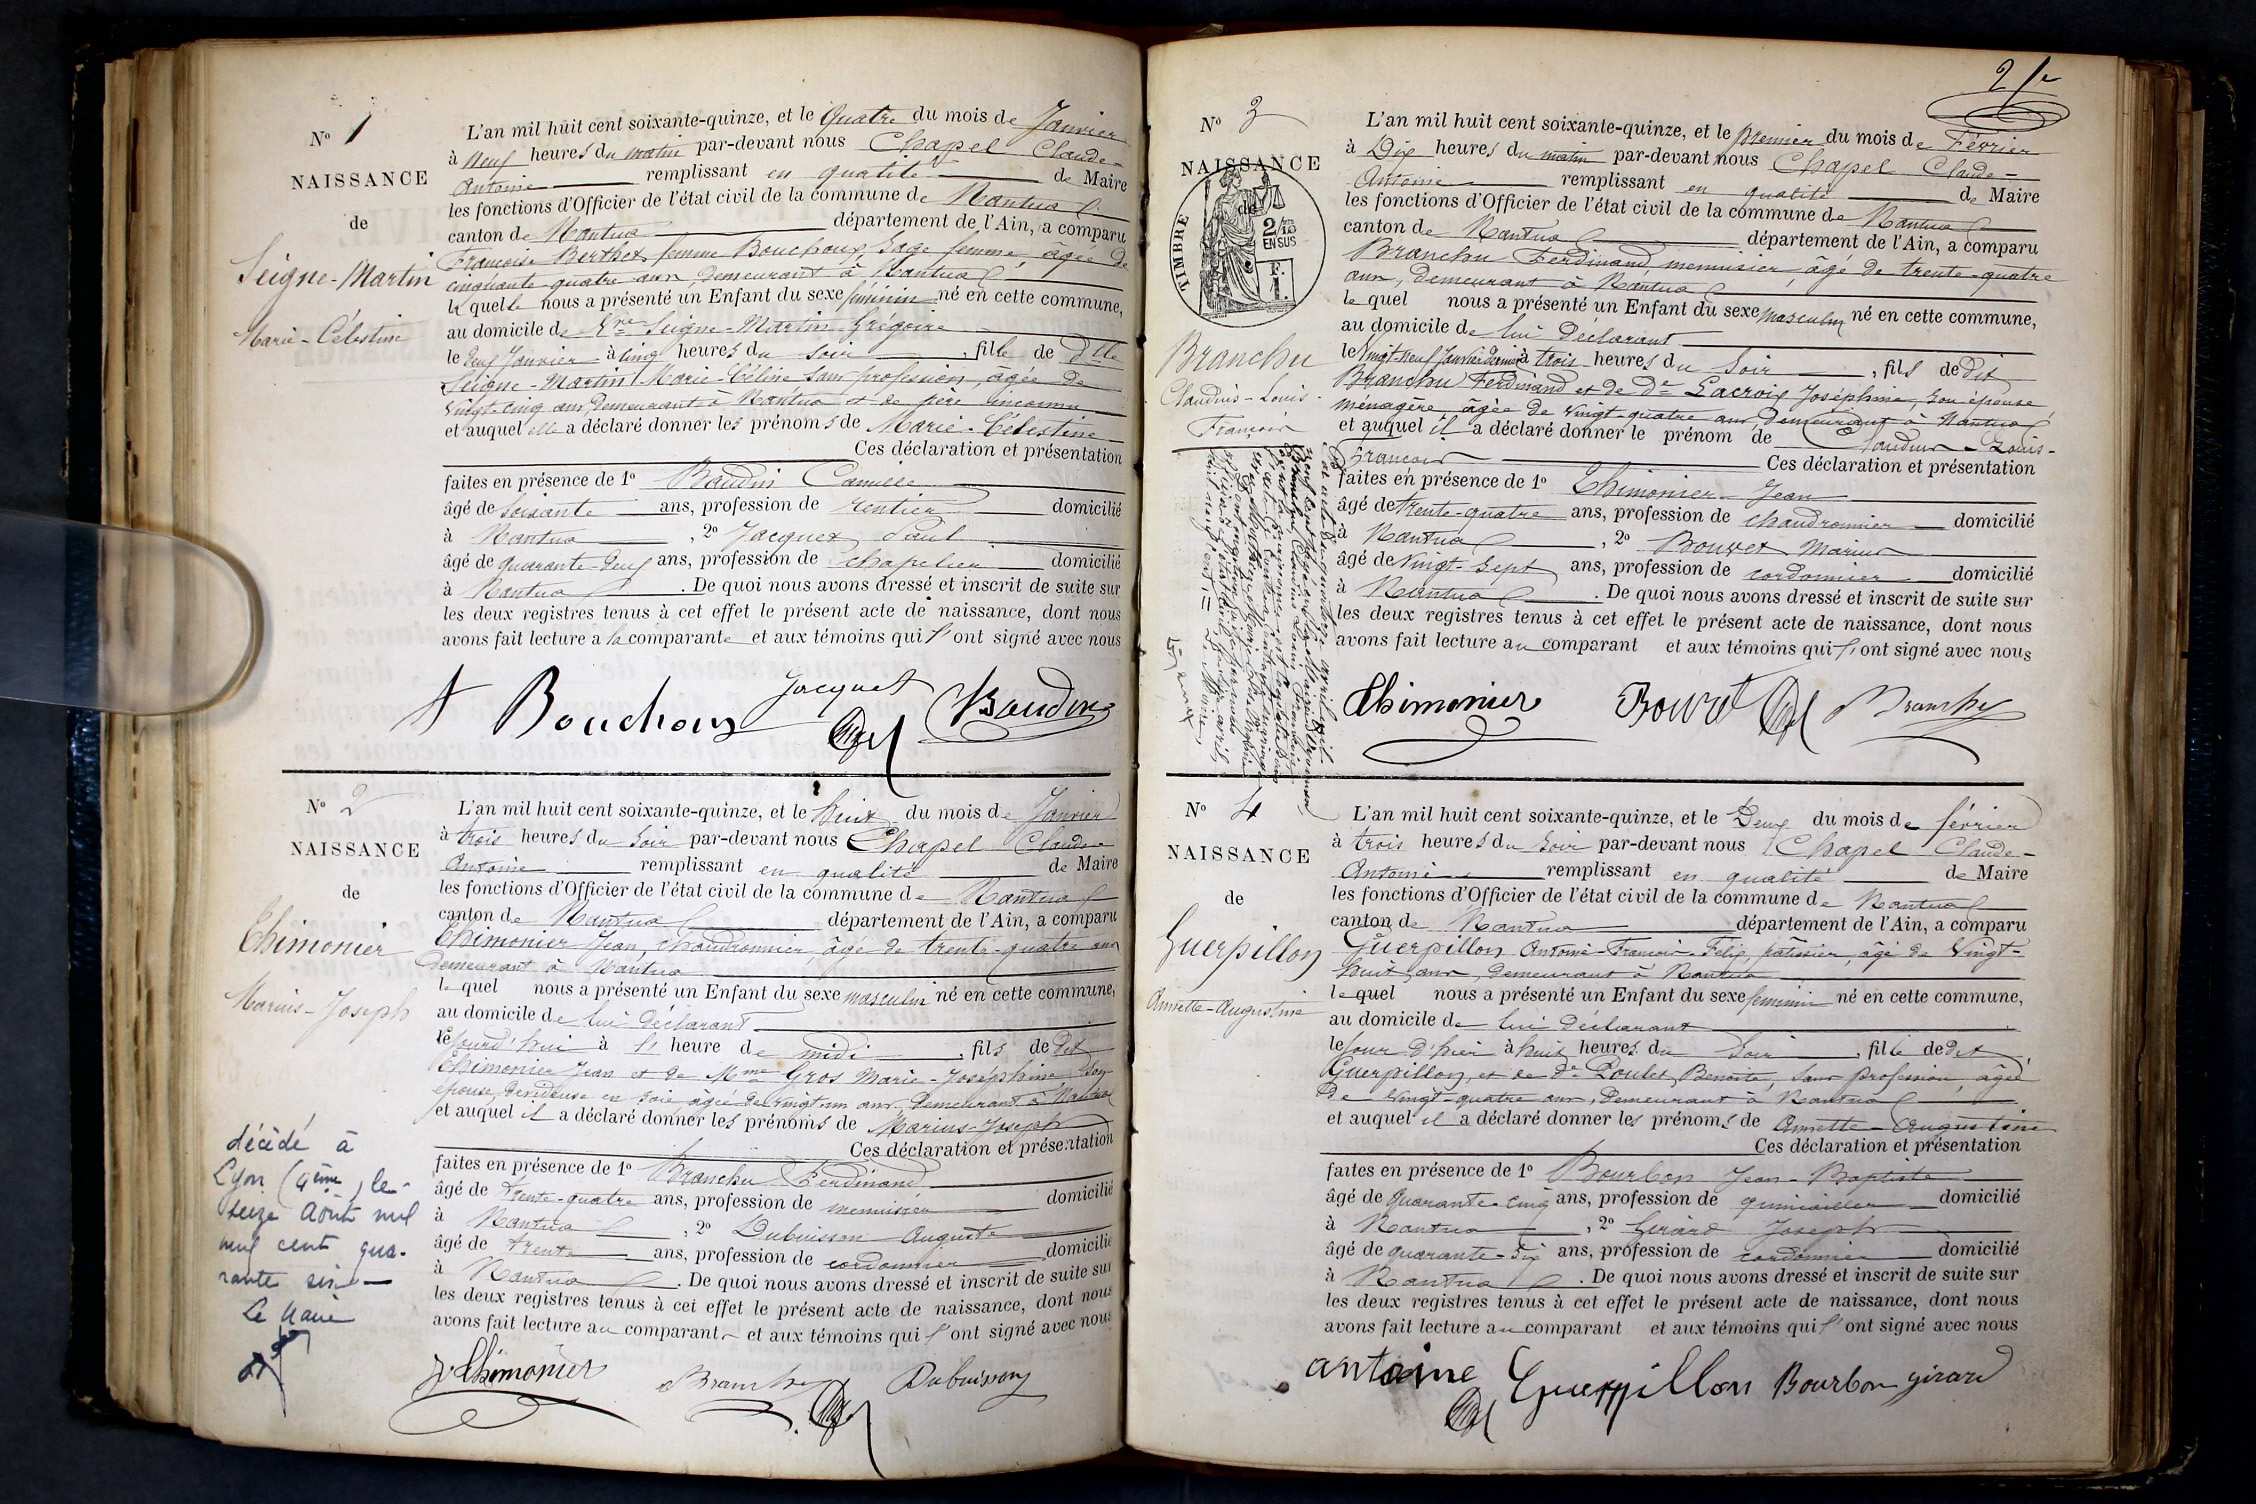 N° 1
NAISSANCE
de
Seigne-Martin
Marie-Célestine
L'an mil huit cent soixante-quinze, et le quatre du mois de Janvier
à neuf heures du matin par-devant nous Chapel Claude-
Antoine remplissant en qualité de Maire
les fonctions d'Officier de l'état civil de la commune de Nantua
canton de Nantua département de l'Ain, a comparu
Françoise Berthet femme Bouchoux, sage femme, âgée de
cinquante-quatre ans, demeurant à Nantua
laquelle nous a présenté un Enfant du sexe féminin né en cette commune,
au domicile de Seigne-Martin Grégoire
le deux Janvier à cinq heures du soir, fille de Dlle
Seigne-Martin Marie-Céline sans profession, âgée de
vingt-cinq ans, demeurant à Nantua et de père inconnu
et auquel elle a déclaré donner les prénoms de Marie-Célestine
Ces déclaration et présentation
faites en présence de 1° Baudin Camille
âgé de soixante ans, profession de rentier domicilié
à Nantua, 2° Jacquet Paul
âgé de quarante-deux ans, profession de chapelier domicilié
à Nantua. De quoi nous avons dressé et inscrit de suite sur
les deux registres tenus à cet effet le présent acte de naissance, dont nous
avons fait lecture a la comparante et aux témoins qui l'ont signé avec nous
Bouchoux Jacquet Baudin
N° 2
NAISSANCE
de
Thimonier
Marius-Joseph
L'an mil huit cent soixante-quinze, et le huit du mois de Janvier
à trois heures du soir par-devant nous Chapel Claude-
Antoine remplissant en qualité de Maire
les fonctions d'Officier de l'état civil de la commune de Nantua
canton de Nantua département de l'Ain, a comparu
Thimonier Jean, chaudronnier, âgé de trente-quatre ans
demeurant à Nantua
lequel nous a présenté un Enfant du sexe masculin né en cette commune,
au domicile de lui déclarant
le jourd'hui à l'heure de midi, fils de dit
Thimonier Jean et de Mme Gros Marie-Joséphine son
épouse, dévideuse en soie âgée de vingt-un ans demeurant à Nantua
et auquel il a déclaré donner les prénoms de Marius-Joseph
Ces déclaration et présentation
faites en présence de 1° Branchu Ferdinand
âgé de trente-quatre ans, profession de menuisier domicilié
à Nantua, 2° Dubuisson Auguste
âgé de trente ans, profession de cordonnier domicilié
à Nantua. De quoi nous avons dressé et inscrit de suite sur
les deux registres tenus à cet effet le présent acte de naissance, dont nous
avons fait lecture au comparant et aux témoins qui l'ont signé avec nous
décédé à
Lyon (4ème) le
seize Août mil
neuf cent qua-
rante six
Le Maire
Thimonier Branchu Dubuisson
2
N° 3
NAISSANCE
de
TIMBRE
2/10 EN SUS
F. 1.
Branchu
Claudius-Louis-
François
L'an mil huit cent soixante-quinze, et le premier du mois de Février
à Dix heures du matin par-devant nous Chapel Claude-
Antoine remplissant en qualité de Maire
les fonctions d'Officier de l'état civil de la commune de Nantua
canton de Nantua département de l'Ain, a comparu
Branchu Ferdinand, menuisier, âgé de trente-quatre
ans, demeurant à Nantua
lequel nous a présenté un Enfant du sexe masculin né en cette commune,
au domicile de lui déclarant
le vingt-neuf Janvier dernier à trois heures du soir, fils de dit
Branchu Ferdinand et de De Lacroix Joséphine, son épouse
ménagère, âgée de vingt-quatre ans, demeurant à Nantua
et auquel il a déclaré donner le prénom de Claudius-Louis-
François Ces déclaration et présentation
faites en présence de 1° Thimonier Jean
âgé de trente-quatre ans, profession de chaudronnier domicilié
à Nantua, 2° Bouvet Marius
âgé de vingt-sept ans, profession de cordonnier domicilié
à Nantua. De quoi nous avons dressé et inscrit de suite sur
les deux registres tenus à cet effet le présent acte de naissance, dont nous
avons fait lecture au comparant et aux témoins qui l'ont signé avec nous
Thimonier Bouvet Branchu
N° 4
NAISSANCE
de
Guerpillon
Annette-Augustine
L'an mil huit cent soixante-quinze, et le Deux du mois de février
à trois heures du soir par-devant nous Chapel Claude-
Antoine remplissant en qualité de Maire
les fonctions d'Officier de l'état civil de la commune de Nantua
canton de Nantua département de l'Ain, a comparu
Guerpillon Antoine-François-Félix, pâtissier, âgé de vingt-
huit ans, demeurant à Nantua
lequel nous a présenté un Enfant du sexe féminin né en cette commune,
au domicile de lui déclarant
le jour d'hier à huit heures du soir, fille de dit
Guerpillon, et de De Poulet Benoite, sans profession, âgée
de vingt-quatre ans, demeurant à Nantua
et auquel il a déclaré donner les prénoms de Annette-Augustine
Ces déclaration et présentation
faites en présence de 1° Bourbon Jean-Baptiste
âgé de quarante-cinq ans, profession de quincailler domicilié
à Nantua, 2° Girard Joseph
âgé de quarante-six ans, profession de cordonnier domicilié
à Nantua. De quoi nous avons dressé et inscrit de suite sur
les deux registres tenus à cet effet le présent acte de naissance, dont nous
avons fait lecture au comparant et aux témoins qui l'ont signé avec nous
antoine Guerpillon Bourbon girard